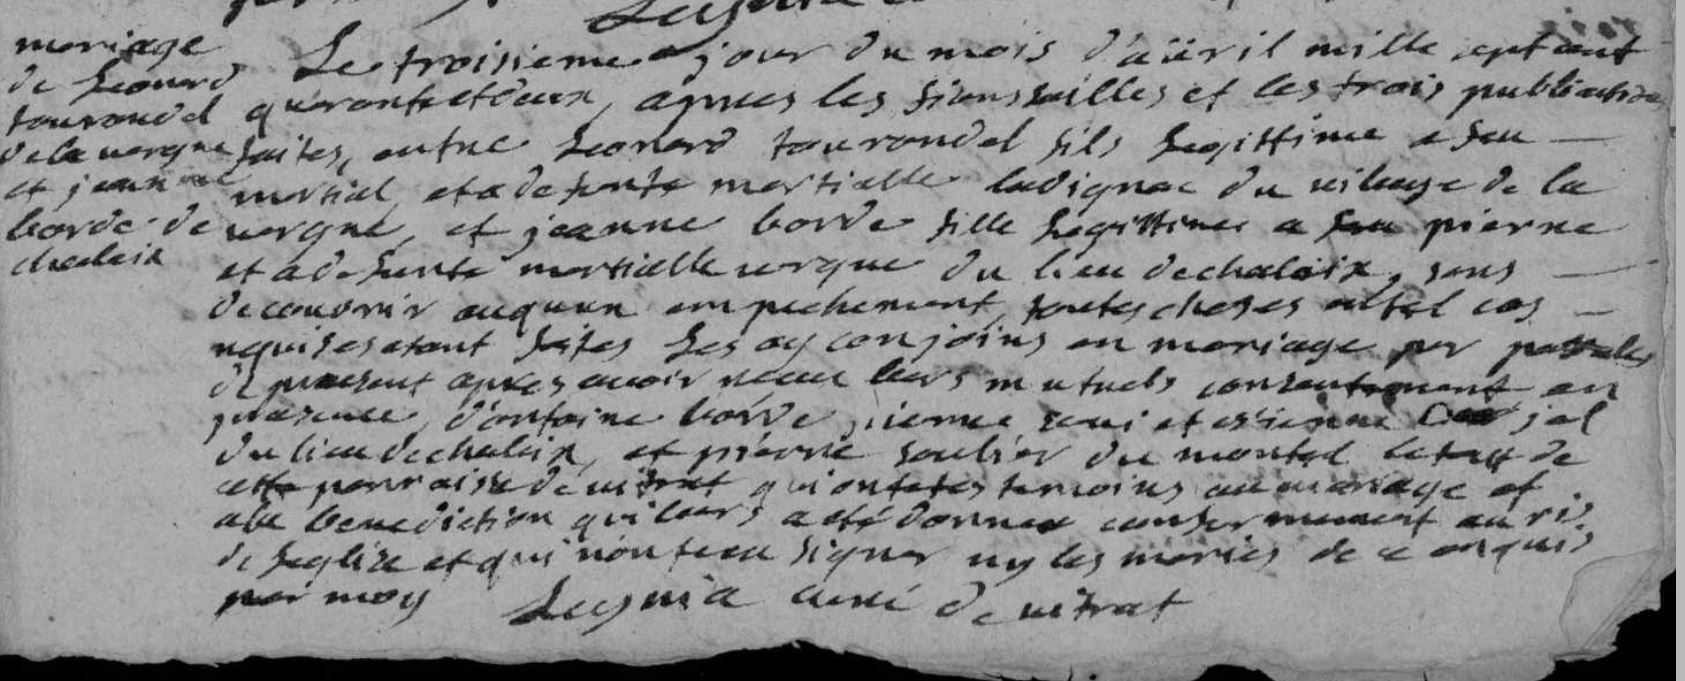 mariage
de Leonard
tourondel
delavergne
et jeanne
borde de
chaleix
Le troisieme jour du mois d'avril mille sept cent
quarante et deux, apres les fiansailles et les trois publications
faites, entre Leonard tourondel fils legittime a feu
martial et a defunte martialle ladignac du vilage de la
vergne, et jeanne borde fille legittime a feu pierre
et a defunte martialle vergne du lieu de chaleix, sans
decouvrir auquun empechement, toutes choses en tel cas
requises etant faites Les ay conjoins en mariage per parolles
de praesent apres avoir receu leurs mutuels consentement en
praesence d'antoine borde, pierre et etienne
du lieu dechaleix, et pierre soulier du montel le tout de
cette parroisse de vitrat qui ont etes temoins au mariage et
a la benediction qui leurs a eté donnee conformement au ris
de leglise et qui n'ont sceu signer ny les maries de ce enquis
par moy
curé de vitrat